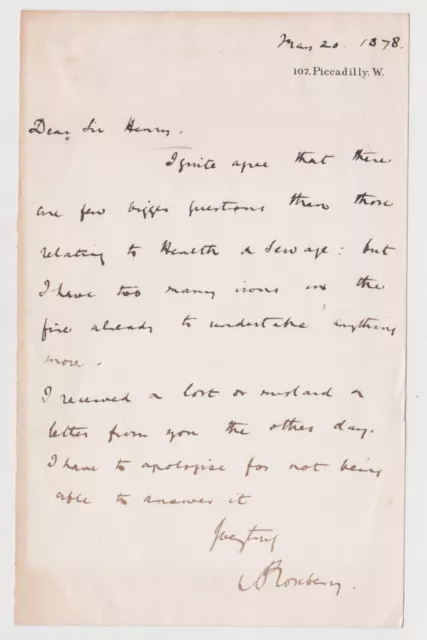 May 20. 1878.
107, Piccadilly. W.
Dear Sir Henry.
I quite agree that there
are few bigger questions than those
relating to Health & Sewage: but
I have too many irons in the
fire already to undertake anything
more.
I received & lost or mislaid a
letter from you the other day.
I have to apologise for not being
able to answer it
Rosebery.